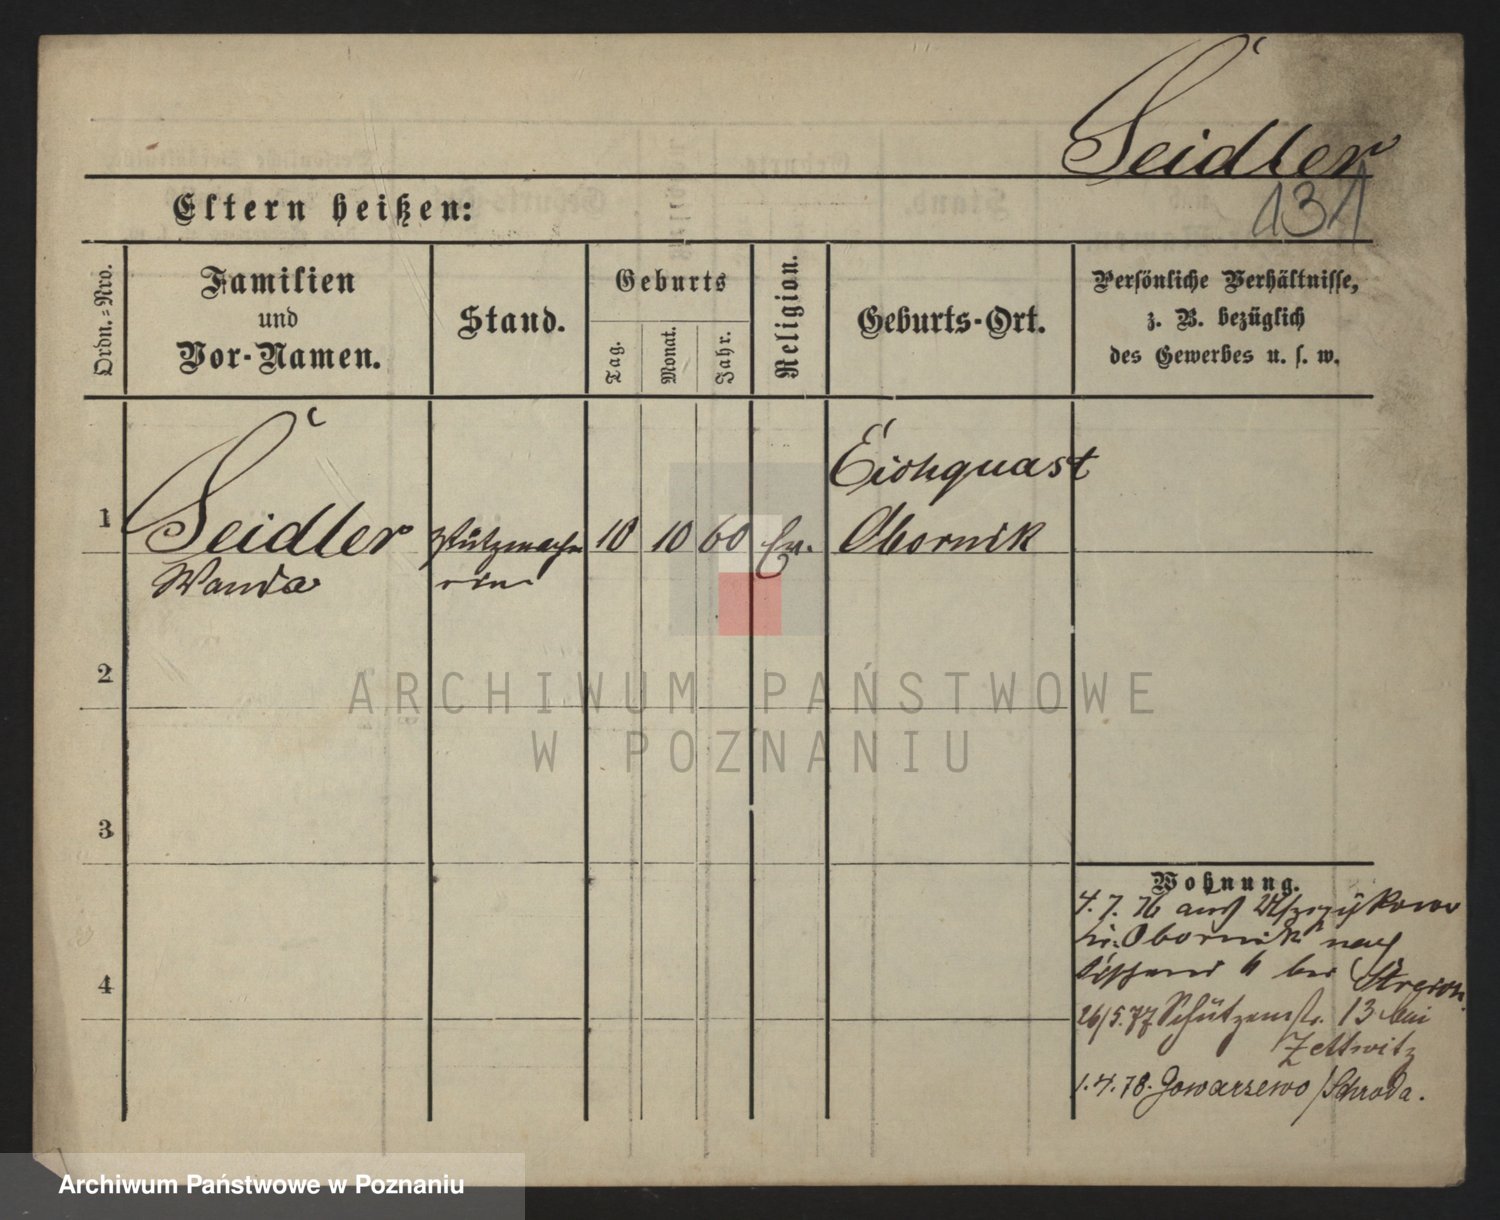 Seidler
131
Eltern heißen:
Ordn.-Nro.
Familien
und
Vor-Namen.
Stand.
Geburts
Tag.
Monat.
Jahr.
Religion.
Geburts-Ort.
Persönliche Verhältnisse,
z. B. bezüglich
des Gewerbes u. s. w.
Eichquast
1 Seidler Putzmache 10 10 60 Ev. Obornik
Wanda rin
2
ARCHIWUM PAŃSTWOWE
W POZNANIU
3
Wohnung.
4. 7. 76 aus
Kr. Obornik nach
4 bei
4
26/5. 77 Schützenstr. 13 bei
Zettwitz
1. 4. 78. Gowarzewo / Schroda.
Archiwum Państwowe w Poznaniu